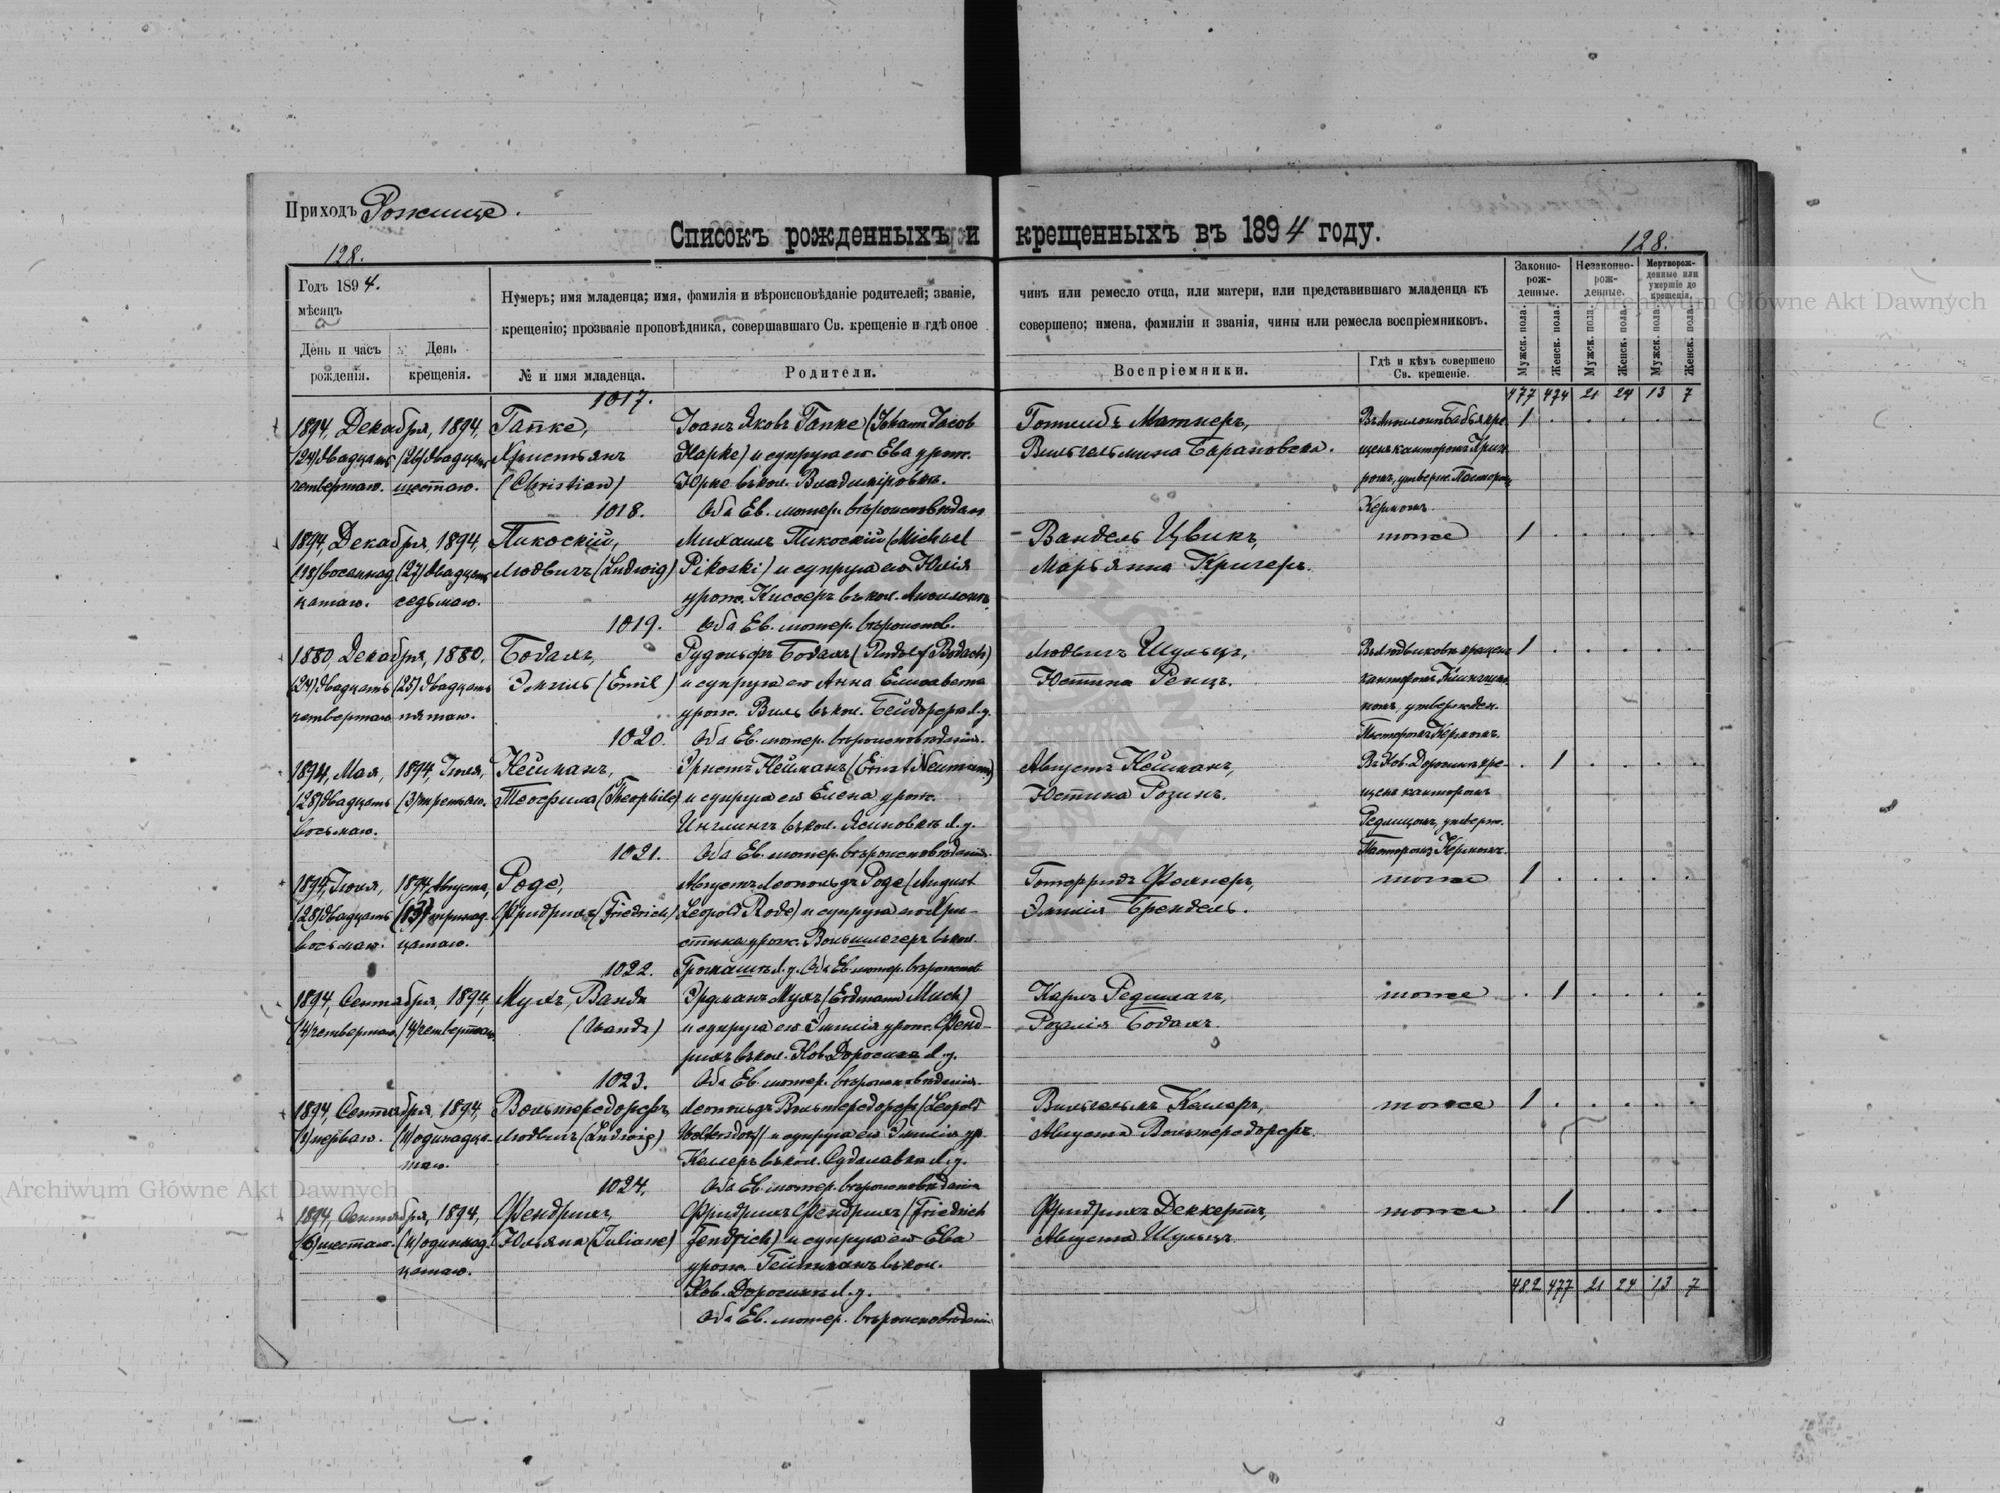 Приходъ Рожище.
Списокъ рожденныхъ и крещенныхъ въ 1894 году.
128.
128.
Годъ 1894.
мѣсяцъ
День и часъ рожденія.
День крещенія.
Нумеръ; имя младенца; имя, фамилія и вѣроисповѣданіе родителей; званіе, чинъ или ремесло отца, или матери, или представившаго младенца къ
крещенію; прозваніе проповѣдника, совершавшаго Св. крещеніе и гдѣ оное совершено; имена, фамиліи и званія, чины или ремесла воспріемниковъ.
№ и имя младенца.
Родители.
Воспріемники.
Гдѣ и кѣмъ совершено Св. крещеніе.
Законнорожденные.
Незаконнорожденные.
Мертворожденные или умершіе до крещенія.
Мужск. пола. Женск. пола. Мужск. пола. Женск. пола. Мужск. пола. Женск. пола.
477 474 21 24 13 7
1017.
1894, Декабря, 1894, Гапке, Іоанъ Яковъ Гапке (Johann Jacob Готлибъ Матнеръ, 1
(24) двадцать (26) двадцать Христьянъ Hapke) и супруга его Ева урож. Вильгельмина Барановска.
четвертаго. шестаго. (Christian) Юрке въ кол. Владиміровкѣ.
1018. Оба Ев. лютер. вѣроисповѣдан.
Керномъ.
1894, Декабря, 1894, Пикоскій, Михаилъ Пикоскій (Michael Вандель Цвикъ, тоже 1
(18) восемнад (27) двадцать Людвигъ (Ludwig) Pikoski) и супруга его Юлія Марьянна Кригеръ.
цатаго. седьмаго. урож. Киссеръ въ кол.
1019. Оба Ев. лютер. вѣроиспов.
1880, Декабря, 1880, Бодахъ, Рудольфъ Бодахъ (Rudolf Bodach) Людвигъ Шульцъ, 1
(24) двадцать (25) двадцать Эмиль (Emil) и супруга его Анна Елисавета Юстина Ренцъ. канторомъ
четвертаго пятаго. урож. Виль въ кол. л. у. утвержден.
1020. Оба Ев. лютер. вѣроисповѣданія. Пасторомъ Керномъ.
1894, Мая, 1894, Іюля, Нейманъ, Эрнстъ Нейманъ (Ernst Neumann) Августъ Нейманъ, 1
(28) двадцать (3) третьяго. Теофила (Theophile) и супруга его Елена урож. Юстина Розинъ. щенъ канторомъ
восьмаго. Инглингъ въ кол. Ясиновкѣ л. у. утверж.
1021. Оба Ев. лютер. вѣроисповѣданія. Пасторомъ Керномъ.
1894, Іюля, 1894, Августа, Роде, Августъ Леопольдъ Роде (August Готфридъ тоже 1
(28) двадцать (13) тринад. Фридрихъ (Friedrich) Leopold Rode) и супруга его Хри- Эмилія Брендель.
восьмаго. цатаго. стина урож. въ кол.
1022. л. у. Оба Ев. лютер. вѣроиспов.
1894, Сентября, 1894, Мухъ, Ванда Эрдманъ Мухъ (Erdmann Much) Карлъ Редшлагъ, тоже 1
(4) четвертаго (4) четвертаго. (Wanda) и супруга его Эмилія урож. Фенд- Розалія Бодахъ.
рихъ въ кол. Нов. Доросина л. у.
1023. Оба Ев. лютер. вѣроисповѣданія.
1894, Сентября, 1894, Вольтерсдорфъ, Леопольдъ Вольтерсдорфъ (Leopold Вильгельмъ Келлеръ, тоже 1
(1) перваго. (11) одинадца- Людвигъ (Ludwig) Woltersdorf) и супруга его Эмилія ур. Августа Вольтерсдорфъ.
таго. Келлеръ въ кол. л. у.
1024. Оба Ев. лютер. вѣроисповѣданія
1894, Сентября, 1894, Фендрихъ, Фридрихъ Фендрихъ (Friedrich Фридрихъ Деккертъ, тоже 1
(6) шестаго. (11) одинад- Юліяна (Juliane) Fendrich) и супруга его Ева Августа Шульцъ.
цатаго. урож. въ кол.
Нов. Доросинѣ л. у.
Оба Ев. лютер. вѣроисповѣданія
482 477 21 24 13 7
Archiwum Główne Akt Dawnych
Archiwum Główne Akt Dawnych